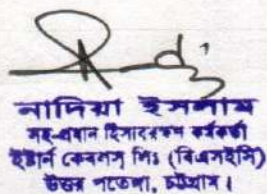 নাদিয়া ইসলাম
সহ-প্রধান হিসাবরক্ষণ কর্মকর্তা
ইষ্টার্ন কেবলস লিঃ (বিএসইসি)
উত্তর পতেঙ্গা, চট্টগ্রাম।